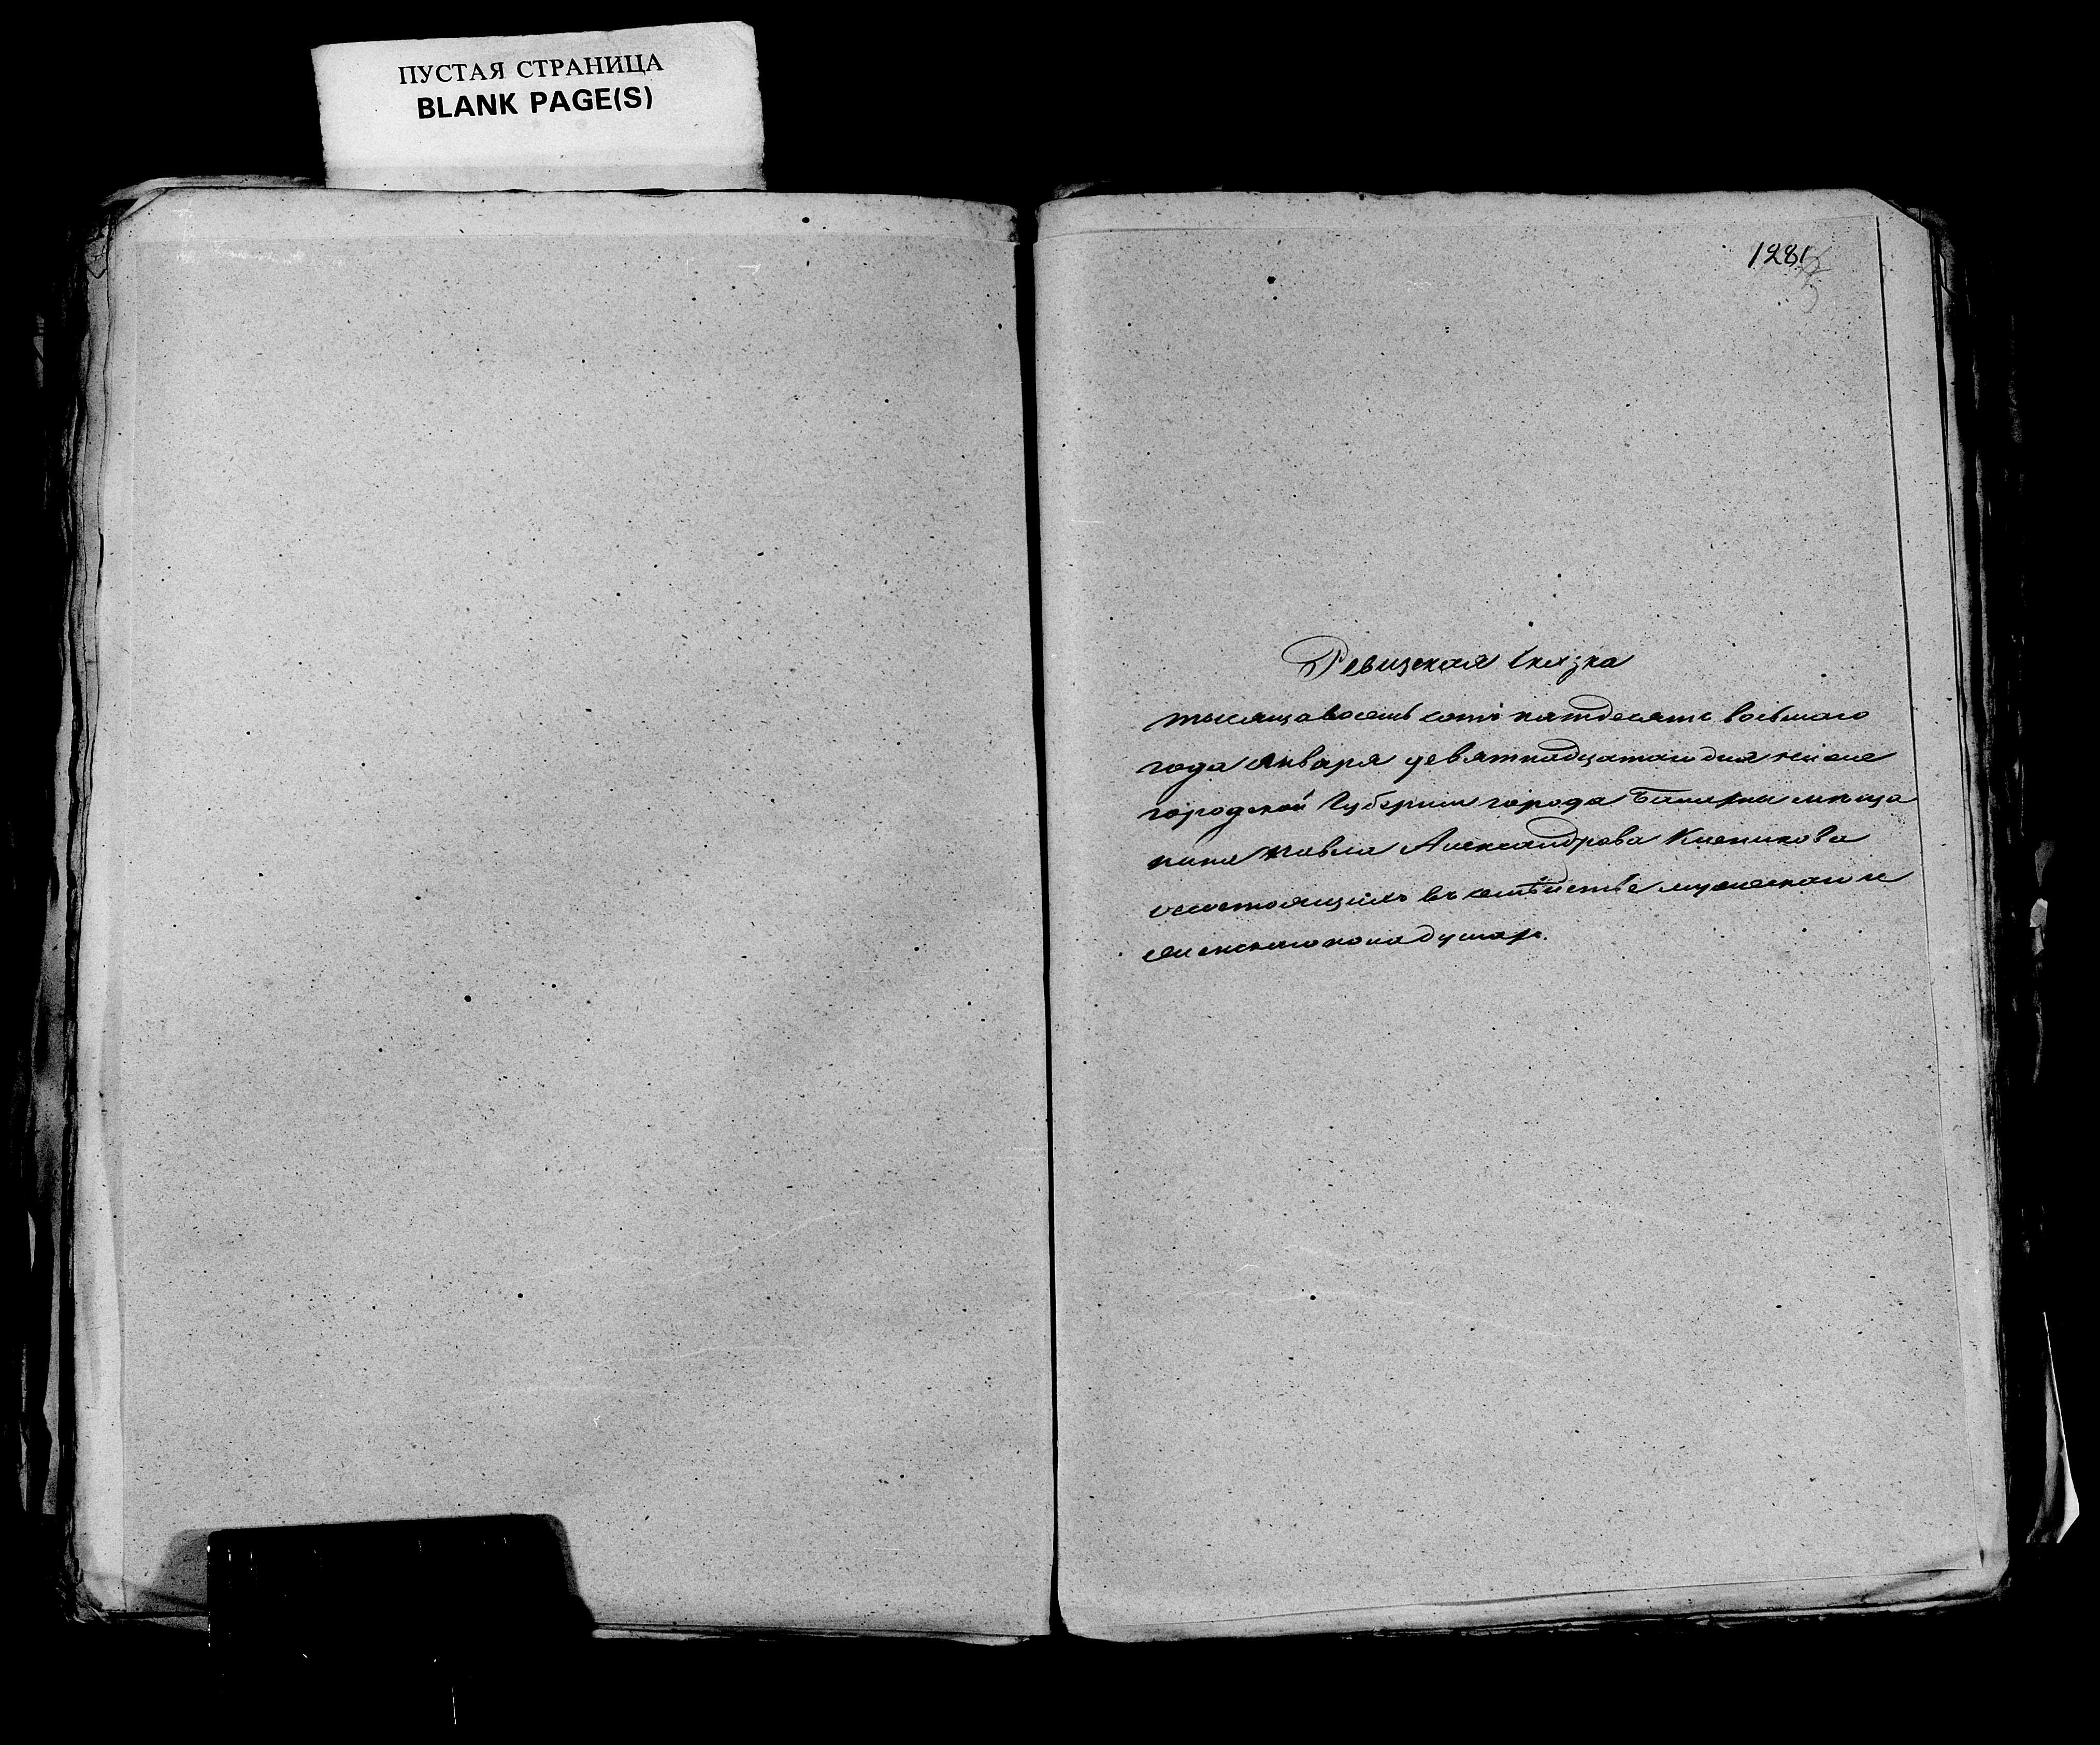 ПУСТАЯ СТРАНИЦА
BLANK PAGE(S)
1281
Ревизская Сказка
тысяща восемь сотъ пятдесятъ восьмаго
года Января девятнадцатаго дня Ниже
городской Губернии города Балахны мѣща
нина Павла Александрова
о состоящихъ въ семѣйствѣ мужескаго и
женскаго пола душахъ.